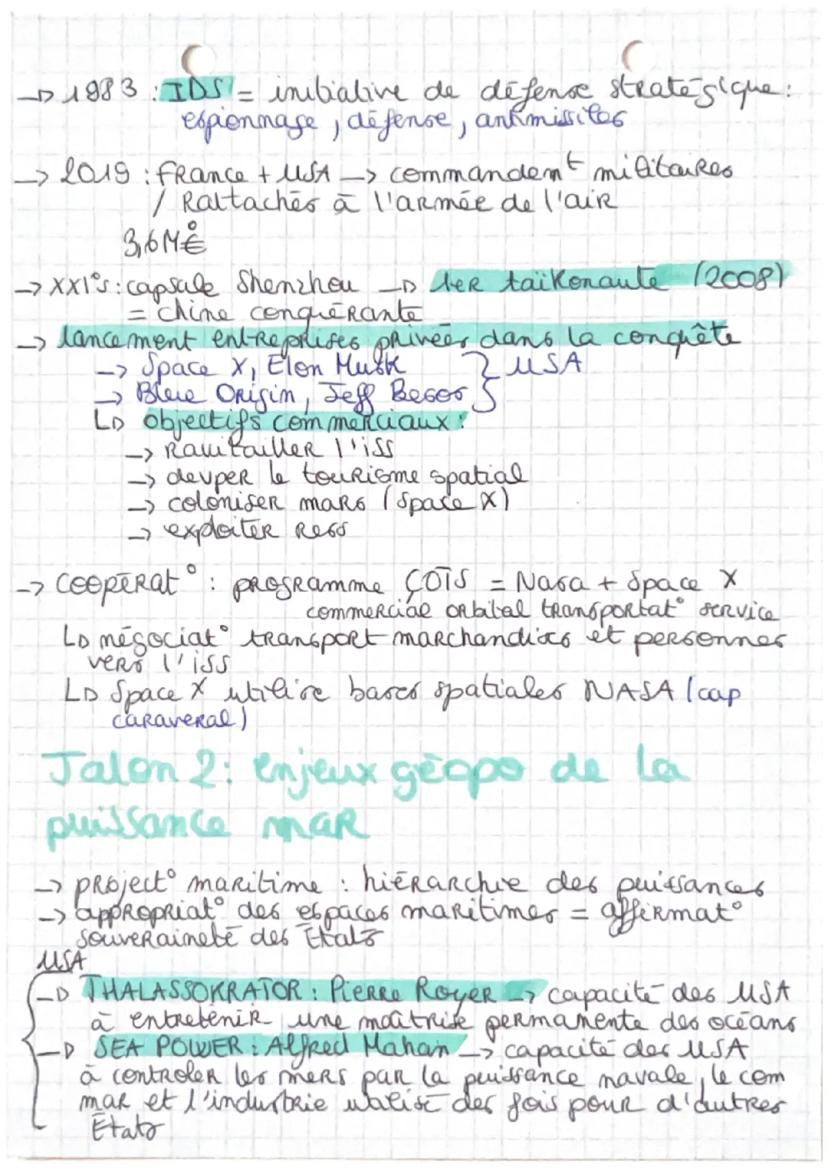 → 1983 : IDS = initiative de défense stratégique :
espionnage, défense, antimissiles
→ 2019 : France + USA → commandemt militaires
/ Rattachés à l'armée de l'air
3,6 M° €
→ XXI°s : capsule Shenzhou → 1er taïkonaute (2008)
= Chine conquérante
→ lancement entreprises privées dans la conquête
→ Space X, Elon Musk } USA
→ Blue Origin, Jeff Besos
↳ objectifs commerciaux :
→ Ravitailler l'iss
→ devper le tourisme spatial
→ coloniser mars (Space X)
→ exploiter ress
→ coopérat° : programme ÇOTS = Nasa + Space X
commercial orbital transportat° service
↳ négociat° transport marchandises et personnes
vers l'iss
↳ Space X utilise bases spatiales NASA (cap
caraveral)
Jalon 2 : enjeux géopo de la
puissance mar
→ project° maritime : hiérarchie des puissances
→ appropriat° des espaces maritimes = affirmat°
souveraineté des États
USA
→ THALASSOKRATOR : Pierre Royer → capacité des USA
à entretenir une maîtrise permanente des océans
→ SEA POWER : Alfred Mahan → capacité des USA
à controler les mers par la puissance navale, le com
mar et l'industrie utilisé des fois pour d'autres
États